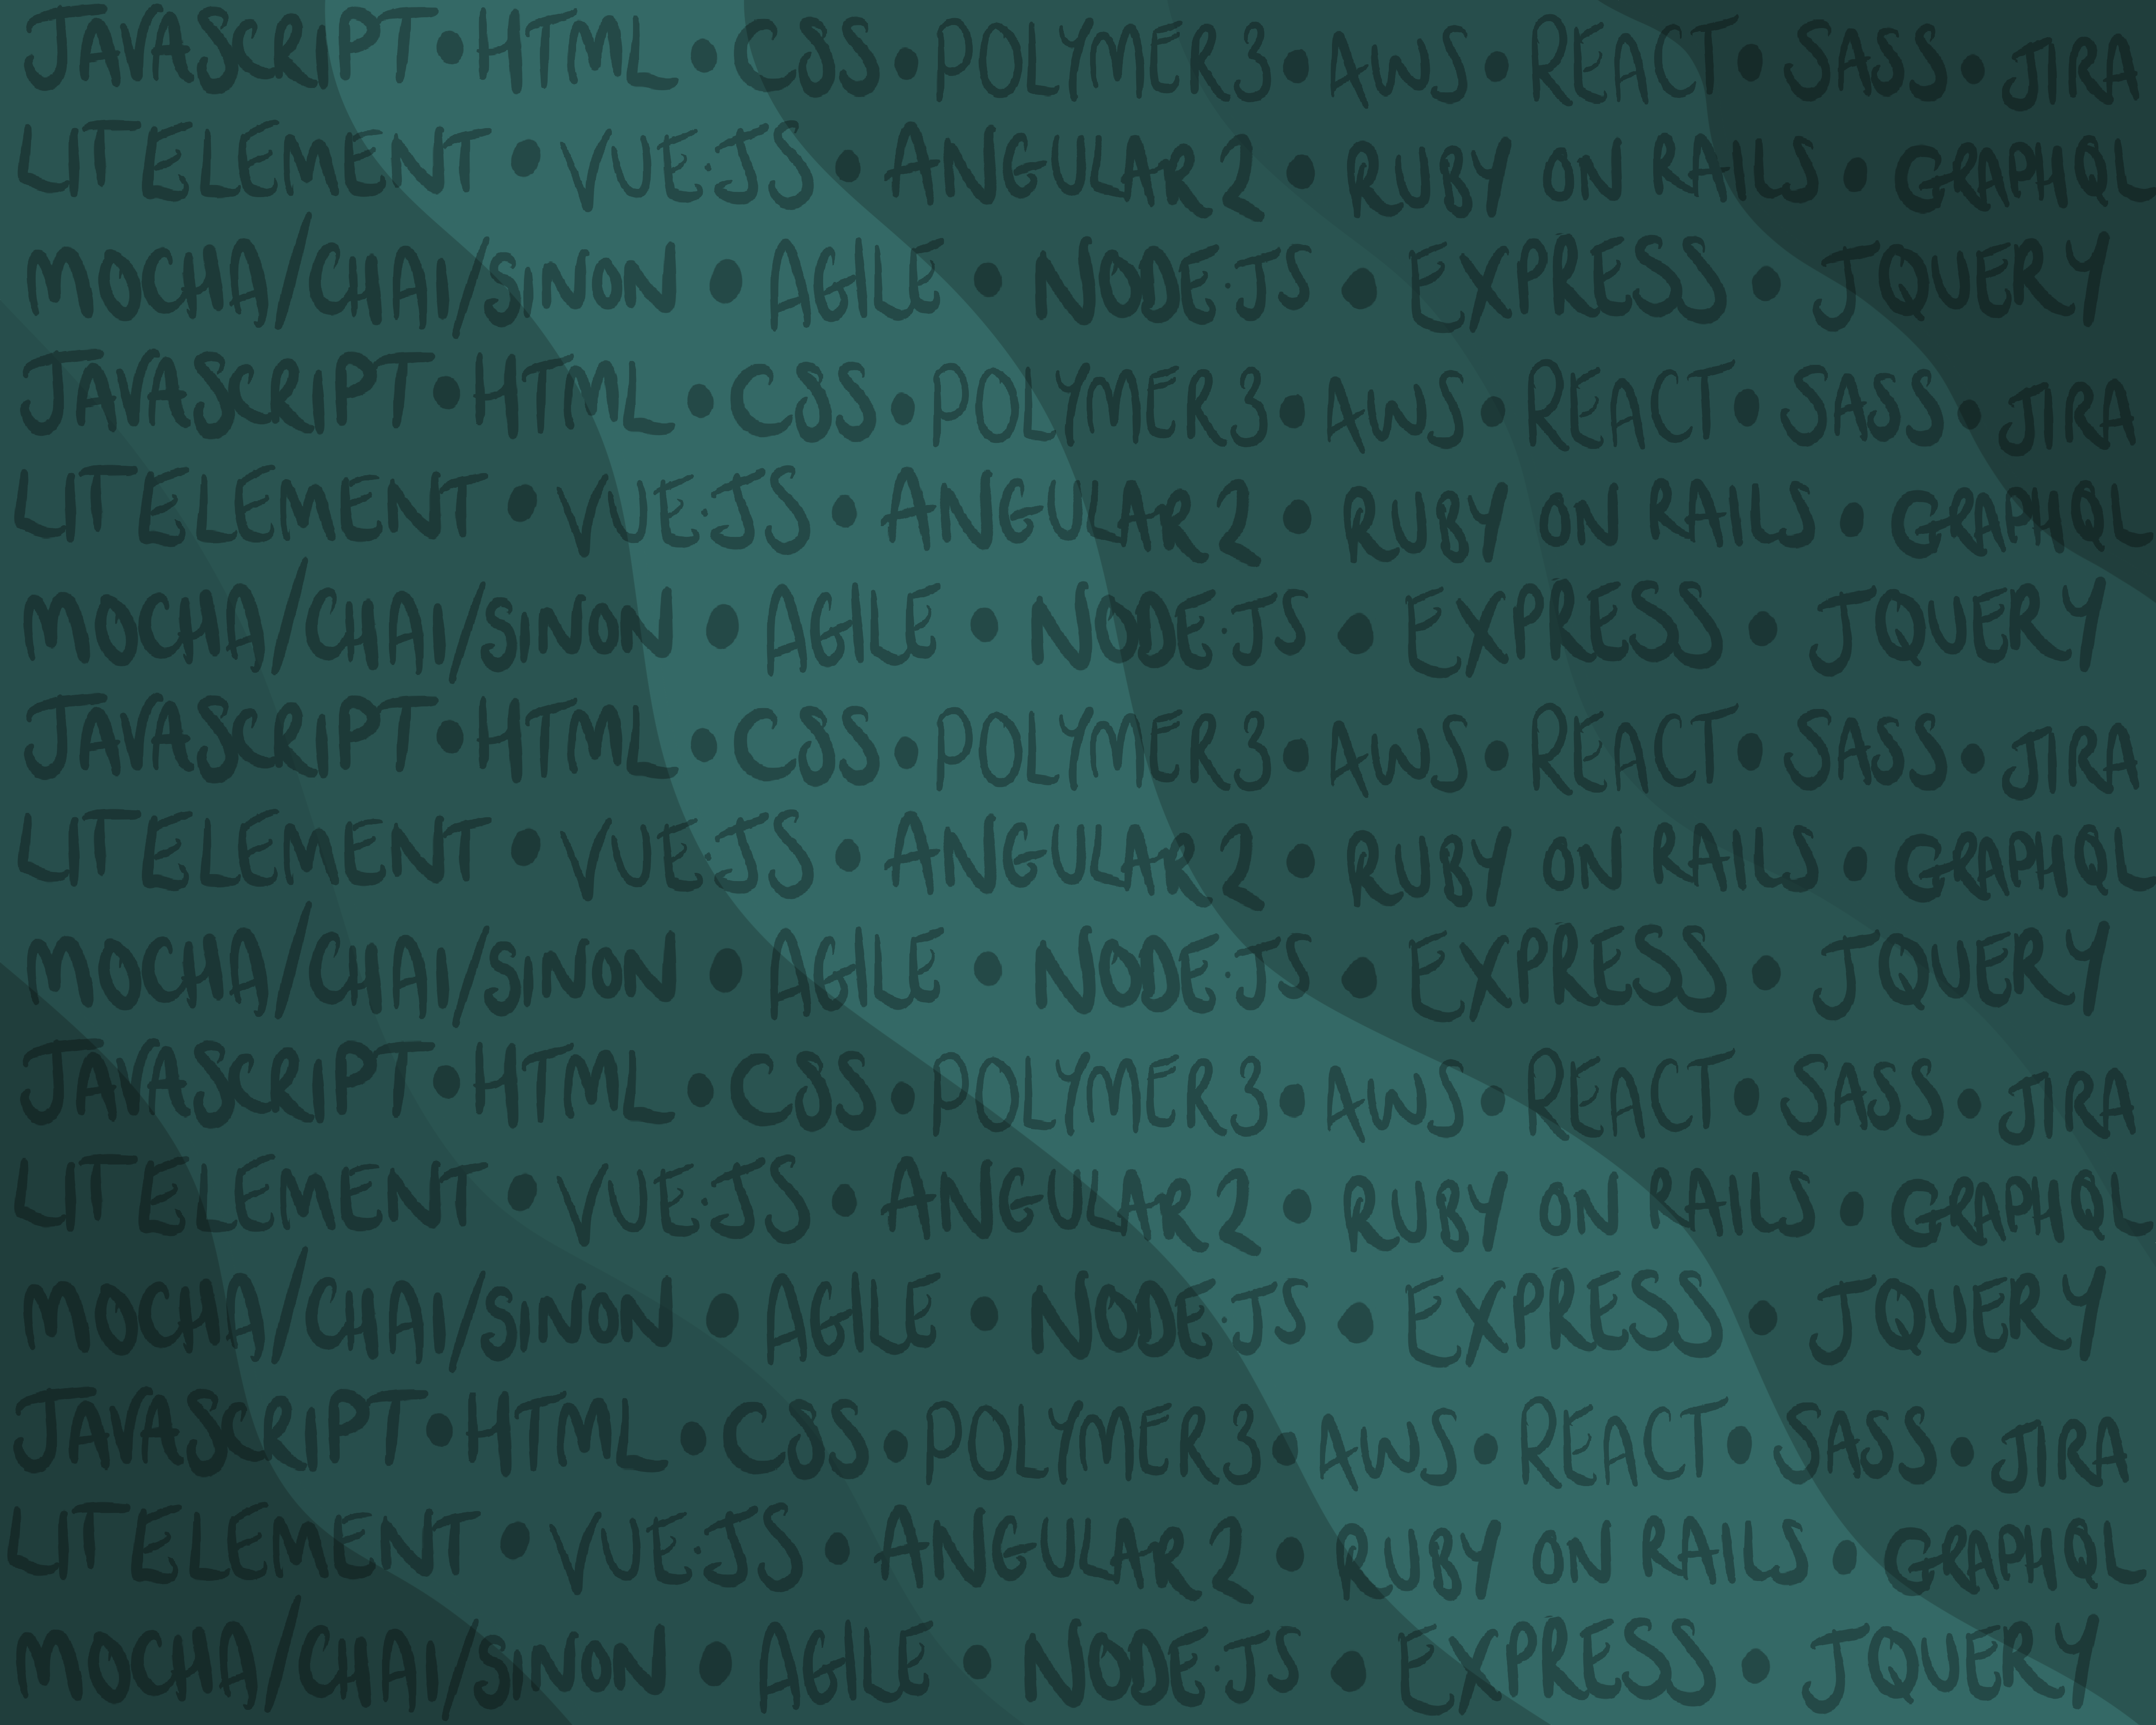 JAVASCRIPT • HTML • CSS • POLYMER3 • AWS • REACT • SASS • JIRA
LITELEMENT • VUE.JS • ANGULAR2 • RUBY ON RAILS • GRAPHQL
MOCHA/CHAI/SINON • AGILE • NODE.JS • EXPRESS • JQUERY
JAVASCRIPT • HTML • CSS • POLYMER3 • AWS • REACT • SASS • JIRA
LITELEMENT • VUE.JS • ANGULAR2 • RUBY ON RAILS • GRAPHQL
MOCHA/CHAI/SINON • AGILE • NODE.JS • EXPRESS • JQUERY
JAVASCRIPT • HTML • CSS • POLYMER3 • AWS • REACT • SASS • JIRA
LITELEMENT • VUE.JS • ANGULAR2 • RUBY ON RAILS • GRAPHQL
MOCHA/CHAI/SINON • AGILE • NODE.JS • EXPRESS • JQUERY
JAVASCRIPT • HTML • CSS • POLYMER3 • AWS • REACT • SASS • JIRA
LITELEMENT • VUE.JS • ANGULAR2 • RUBY ON RAILS • GRAPHQL
MOCHA/CHAI/SINON • AGILE • NODE.JS • EXPRESS • JQUERY
JAVASCRIPT • HTML • CSS • POLYMER3 • AWS • REACT • SASS • JIRA
LITELEMENT • VUE.JS • ANGULAR2 • RUBY ON RAILS • GRAPHQL
MOCHA/CHAI/SINON • AGILE • NODE.JS • EXPRESS • JQUERY